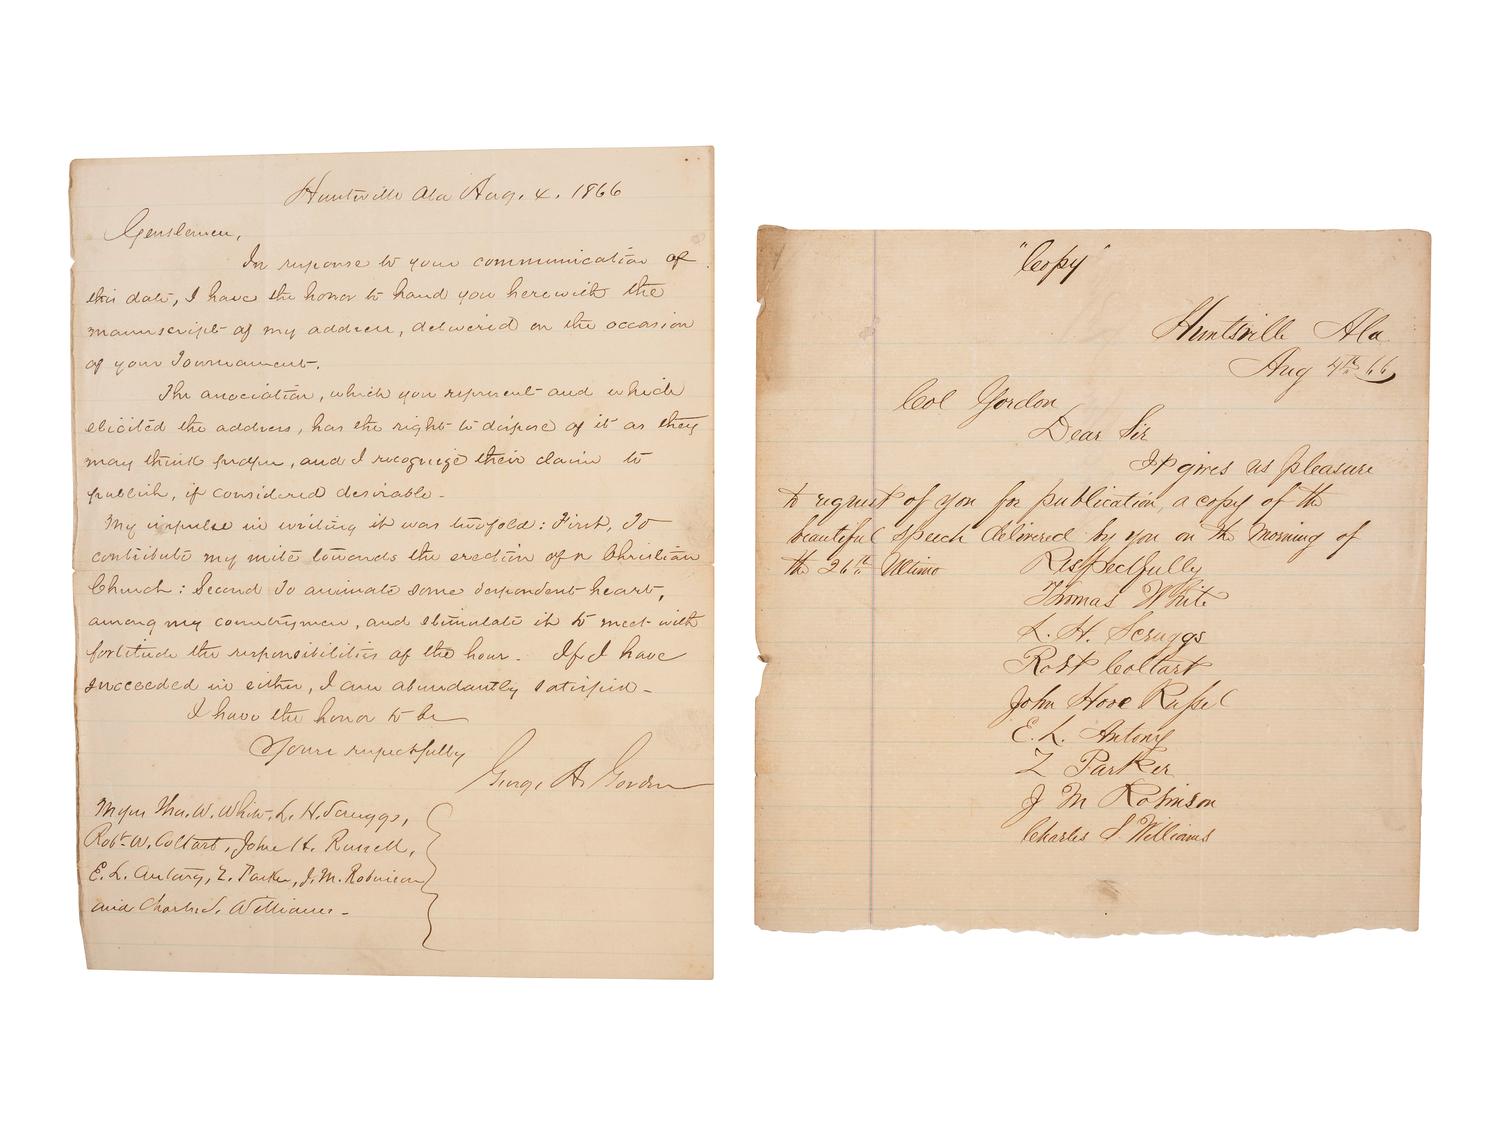 Huntsville Ala Aug. 4. 1866
Gentlemen,
In response to your communication of
this date, I have the honor to hand you herewith the
manuscript of my address, delivered on the occasion
of your Tournament.
The association, which you represent and which
elicited the address, has the right to dispose of it as they
may think proper, and I recognize their claim to
publish, if considered desirable.
My impulse in writing it was twofold: First, To
contribute my mite towards the erection of a Christian
Church: Second To animate some despondent heart,
among my countrymen, and stimulate it to meet with
fortitude the responsibilities of the hour. If I have
succeeded in either, I am abundantly satisfied.
I have the honor to be
Yours respectfully
George A. Gordon
Thos. W. White, L. H. Scruggs,
Robt. W. Coltart, John H. Russell,
E. L. Antony, Z. Parker, J. M. Robinson
and Charles S. Williams.
"Copy"
Huntsville Ala
Aug 4th 66
Col Gordon
Dear Sir
It gives us pleasure
to request of you for publication, a copy of the
beautiful speech delivered by you on the morning of
the 26th Ultimo
Respectfully
Thomas White
L. H. Scruggs
Robt Coltart
John Russel
E. L. Antony
Z Parker
J M Robinson
Charles S Williams